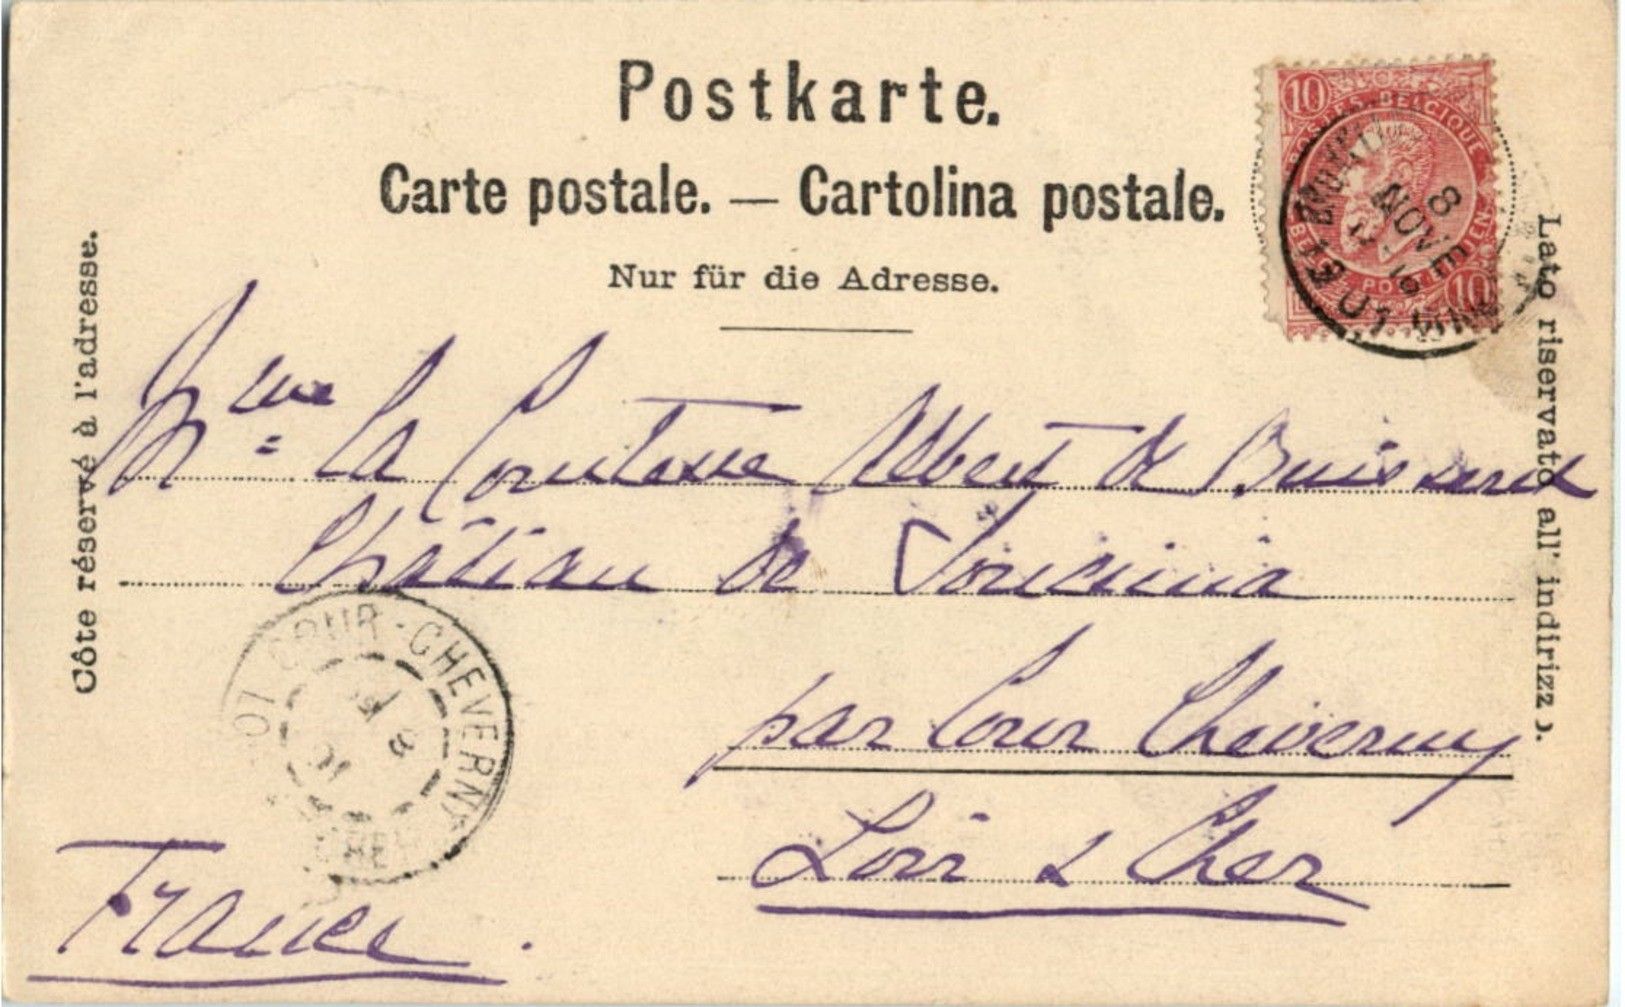 Postkarte.
Carte postale. — Cartolina postale.
Nur für die Adresse.
Côte réservé à l'adresse.
Lato riservato all' indirizz ).
10 10
POSTES BELGIQUE
10
8
NOVE
Mme La Comtesse Albert de
Château de
par Cour Cheverny
Loir & Cher
France.
COUR-CHEVERNY
CHER